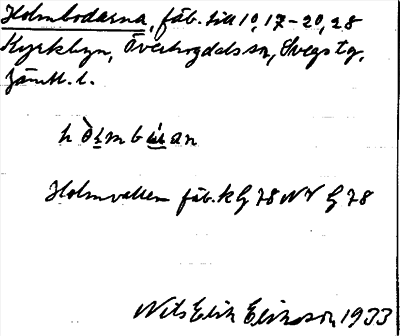 Holmbodarna, fäb. till 10, 17-20, 28
Kyrkbyn, Överhogdals sn, Svegs tg,
Jämtl. l.
Holmvallen fäb. k G 78 NV G 78
Nils Erik Eliasson 1933